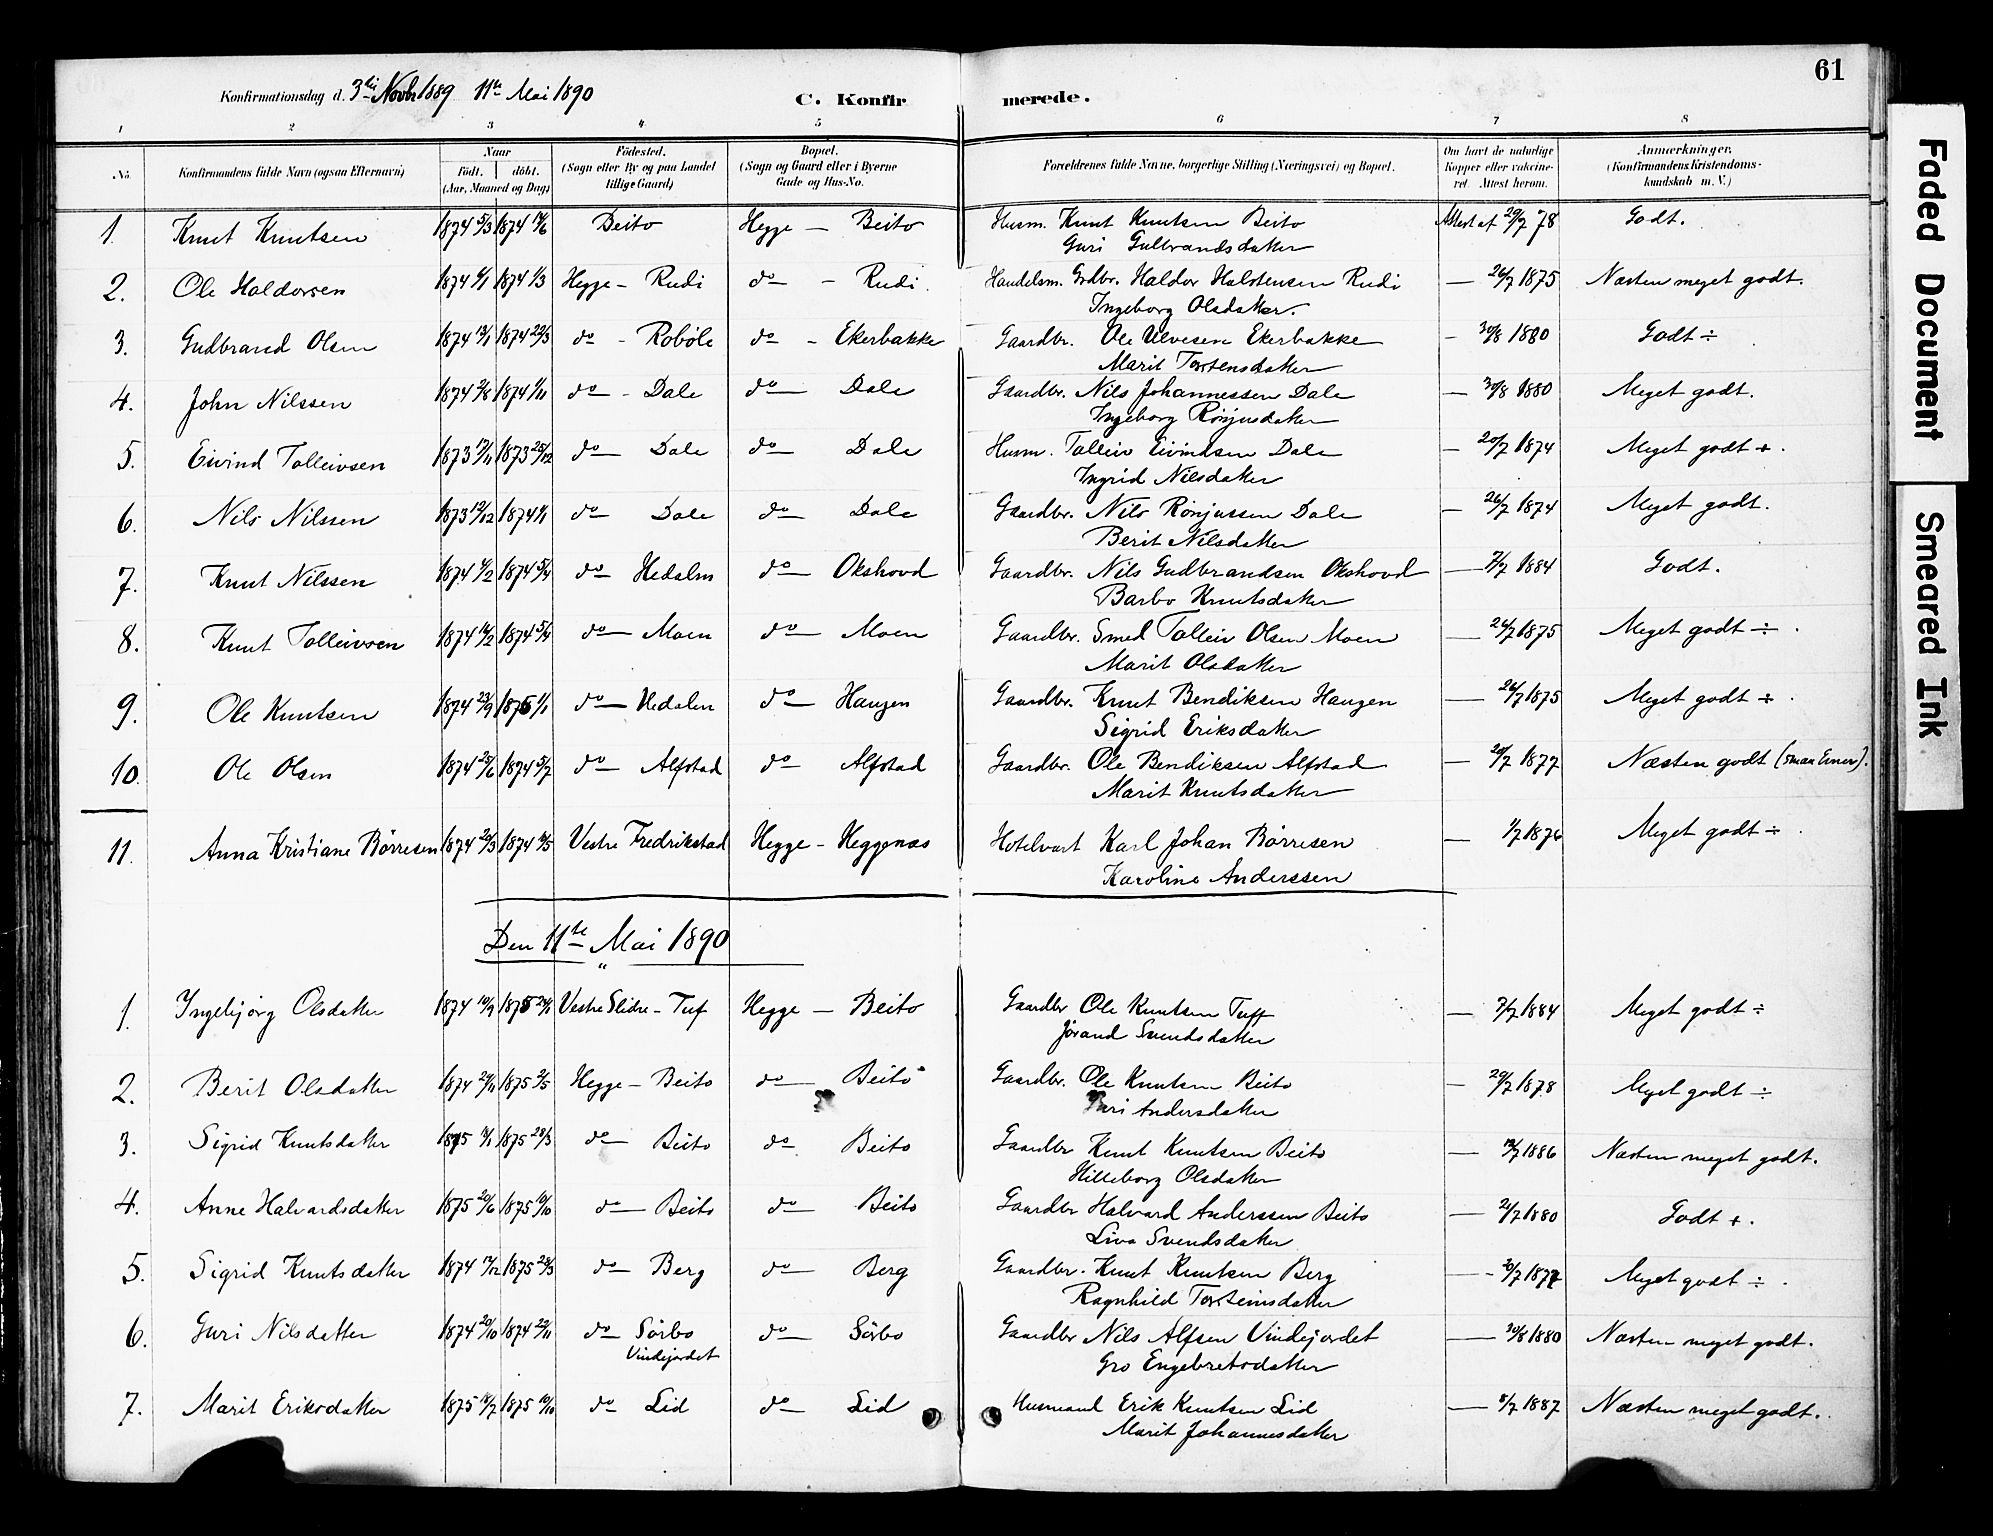 61
Konfirmationsdag d. 3die Novbr 1889 11te Mai 1890
C. Konfirmerede.
1 2 3 4 5 6 7 8
No. Konfirmandens fulde Navn (ogsaa Efternavn) Naar født. døbt. (Aar, Maaned og Dag) Fødested. (Sogn eller By og paa Landet tillige Gaard) Bopæl. (Sogn og Gaard eller i Byerne Gade og Hus-No. Forældrenes fulde Navne, borgerlige Stilling (Næringsvei) og Bopæl. Om havt de naturlige Kopper eller vaccineret. Attest herom. Anmærkninger. (Konfirmandens Kristendomskundskab m. V.)
1. Knut Knutsen 1874 5/3 1874 14/6 Beito Hegge – Beito Husm. Knut Knutsen Beito Attest af 29/7 78 Godt.
Guri Gulbrandsdatter
2. Ole Haldorsen 1874 6/1 1874 1/3 Hegge – Rudi do – Rudi. Handelsm. Grdbr. Haldor Halstensen Rudi — 26/7 1875 Næsten meget godt.
Ingeborg Olsdatter.
3. Gudbrand Olsen 1874 19/1 1874 22/3 do – Robøle do – Ekerbakke Gaardbr. Ole Ulvesen Ekerbakke – 30/8 1880 Godt ÷
Marit Torstensdatter
4. John Nilssen 1874 3/8 1874 1/11 do – Dale do – Dale Gaardbr. Nils Johannessen Dale — 30/8 1880 Meget godt.
Ingeborg Rønjusdatter
5. Eivind Tolleivsen 1873 17/11 1873 25/12 do – Dale do Dale Husm. Tolleiv Eivindsen Dale – 20/7 1874 Meget godt +.
Ingrid Nilsdatter
6. Nils Nilssen 1873 12/12 1874 1/1 do – Dale do – Dale Gaardbr. Nils Rønjussen Dale – 26/7 1874 Meget godt.
Berit Nilsdatter
7. Knut Nilssen 1874 6/2 1874 5/4 do – Hedalen do – Okshovd Gaardbr. Nils Gudbrandsen Okshovd — 7/7 1884 Godt.
Barbo Knutsdatter
8. Knut Tolleivsen 1874 14/2 1874 5/4 do – Moen do – Moen Gaardbr. Smed Tolleiv Olsen Moen — 26/7 1875 Meget godt ÷.
Marit Olsdatter
9. Ole Knutsen 1874 23/9 1875 1/1 do – Hedalen do – Haugen Gaardbr. Knut Bendiksen Haugen — 26/7 1875 Meget godt +.
Sigrid Eriksdatter
10. Ole Olsen 1874 25/6 1874 5/7 do – Alfstad do – Alfstad Gaardbr. Ole Bendiksen Alfstad — 20/7 1877 Næsten godt (smaa Evner).
Marit Knutsdatter
11. Anna Kristiane Børresen 1874 20/3 1874 14/5 Vestre Fredrikstad Hegge – Heggenæs Hotelvært Karl Johan Børresen — 1/7 1876 Meget godt ÷.
Karoline Anderssen
Den 11te Mai 1890
1. Ingebjørg Olsdatter 1874 10/9 1875 24/1 Vestre Slidre – Tuf Hegge – Beito Gaardbr Ole Knutsen Tuff — 7/7 1884 Meget godt ÷
Jørand Svendsdatter
2. Berit Olsdatter 1874 24/11 1875 2/5 Hegge – Beito do – Beito Gaardbr. Ole Knutsen Beito – 29/7 1878 Meget godt ÷
Guri Andersdatter
3. Sigrid Knutsdatter 1875 14/1 1875 28/3 do – Beito do Beito Gaardbr Knut Knutsen Beito — 13/7 1886 Næsten meget godt.
Hilleborg Olsdatter
4. Anne Halvardsdatter 1875 20/6 1875 10/10 do – Beito do – Beito Gaardbr Halvard Anderssen Beito — 21/7 1880 Godt +.
Liva Svendsdatter
5. Sigrid Knutsdatter 1874 17/12 1875 28/3 do – Berg do – Berg Gaardbr. Knut Knutsen Berg — 20/7 1877 Meget godt ÷.
Ragnhild Torsteinsdatter
6. Guri Nilsdatter 1874 20/10 1874 22/11 do – Sørbo do – Sørbo Gaardbr Nils Alfsen Vindejordet — 30/8 1880 Næsten meget godt.
Vindejordet Gro Engebretsdatter
7. Marit Eriksdatter 1875 14/7 1875 10/10 do – Lid do – Lid Husmand Erik Knutsen Lid — 8/7 1887 Næsten meget godt.
Marit Johannesdatter
Faded Document
Smeared Ink